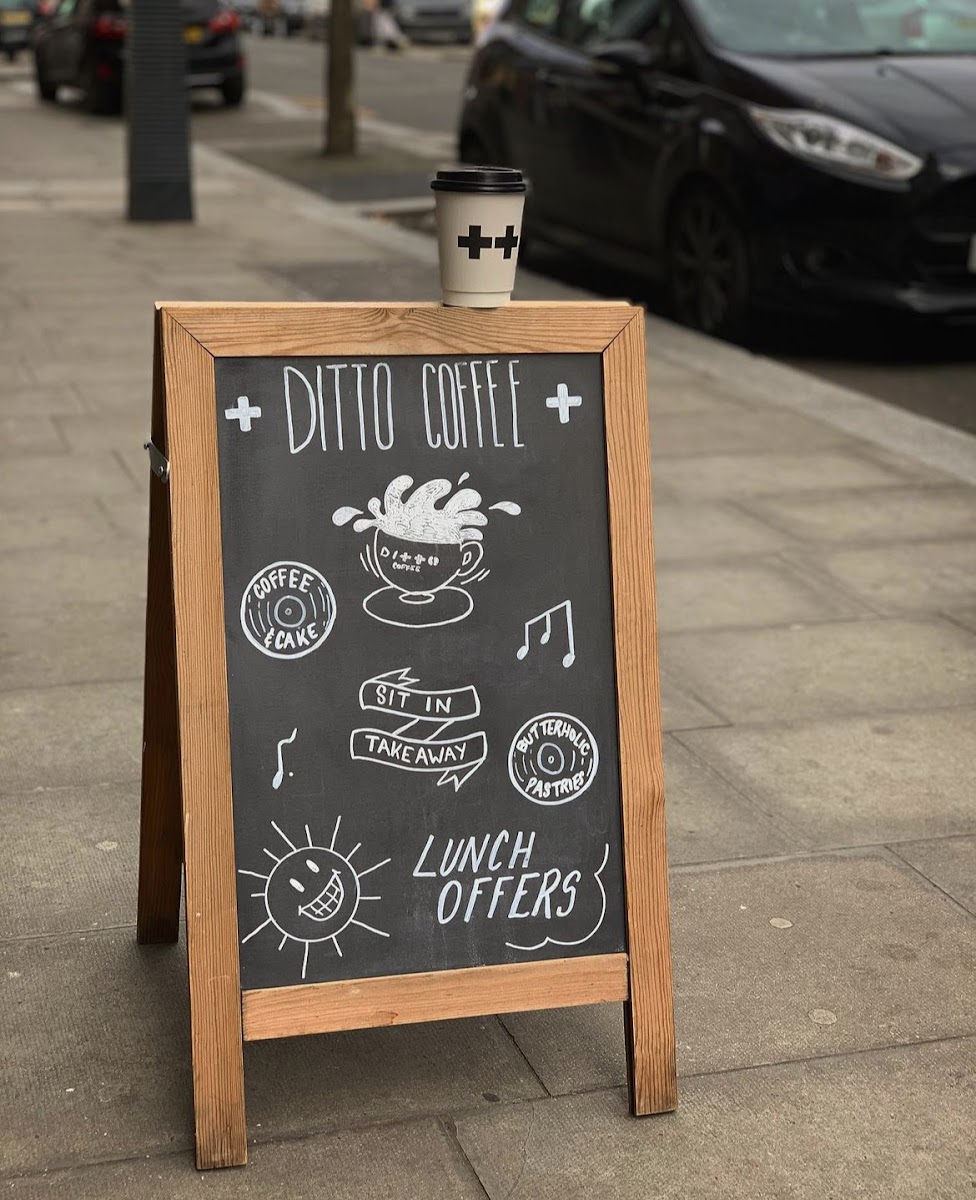 DITTO COFFEE
DITTO
COFFEE
COFFEE
& CAKE
SIT IN
TAKEAWAY
BUTTERHOLIC
PASTRIES
LUNCH
OFFERS